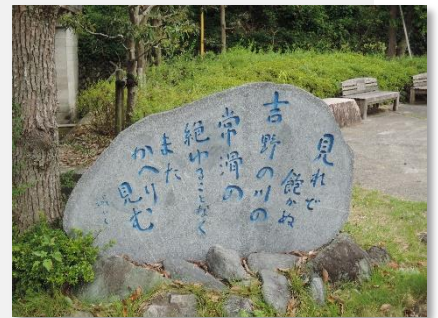 見れど
飽かぬ
吉野の川の
常滑の
絶ゆることなく
また
かへり
見む